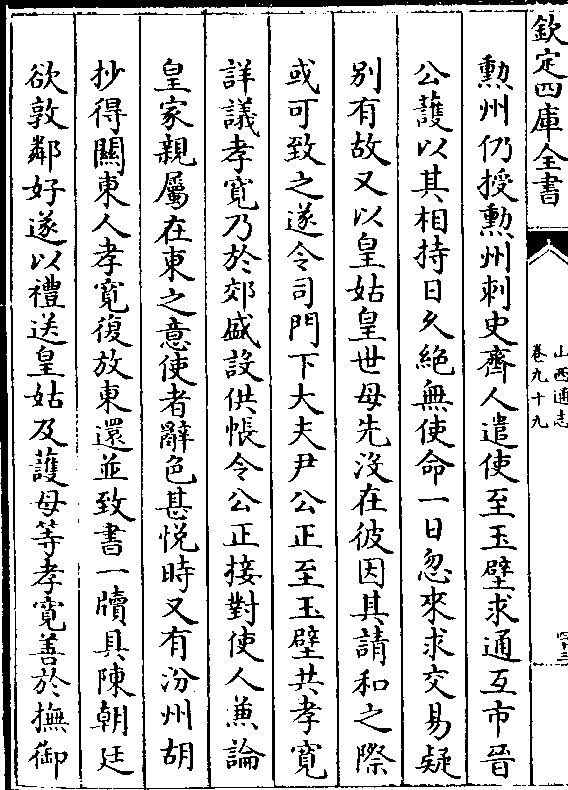 欽定四庫全書
山西通志
卷九十九
勲州仍授勲州刺史齊人遣使至玉壁求通互市晉
公護以其相持日久絶無使命一日忽來求交易疑
别有故又以皇姑皇世母先没在彼因其請和之際
或可致之遂令司門下大夫尹公正至玉壁共孝寛
詳議孝寛乃於郊盛設供帳令公正接對使人兼論
皇家親屬在東之意使者辭色甚悦時又有汾州胡
抄得闗東人孝寛復放東還並致書一牘具陳朝廷
欲敦鄰好遂以禮送皇姑及護母等孝寛善於撫御